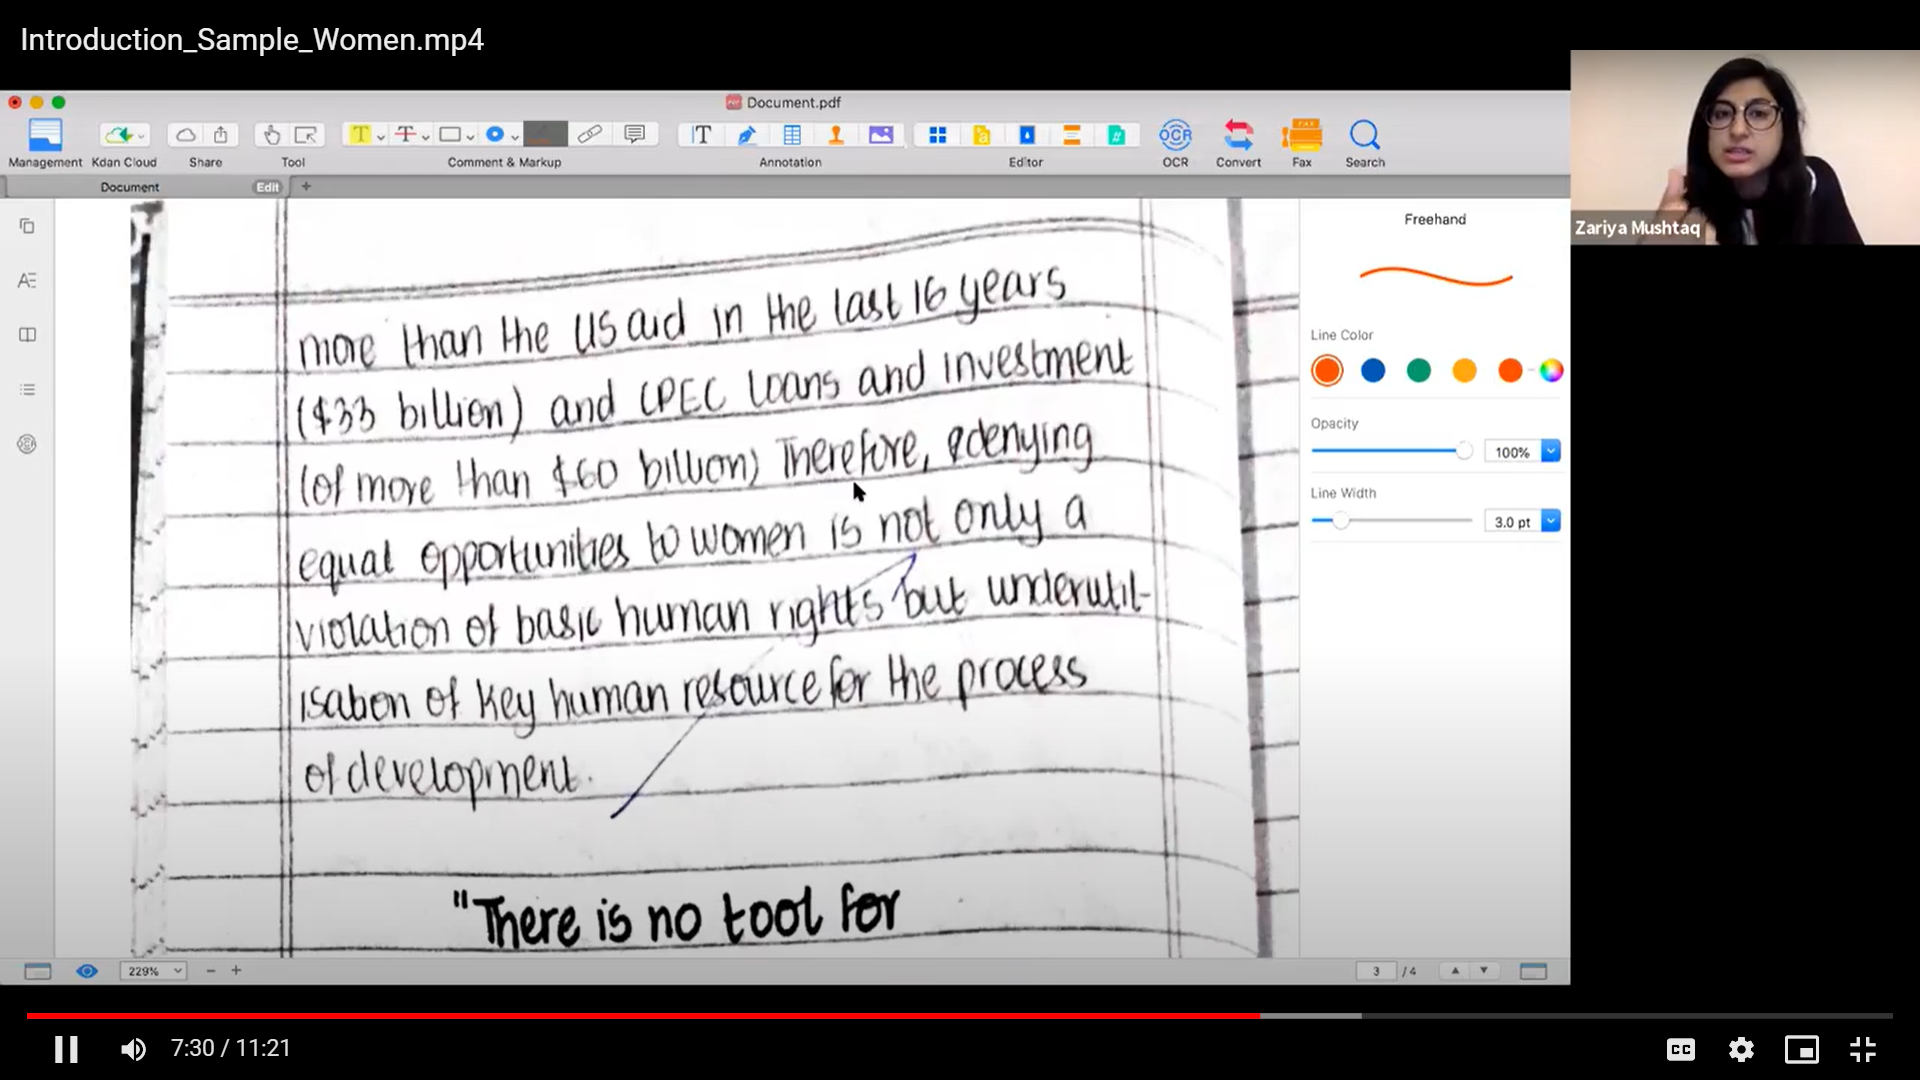 Introduction_Sample_Women.mp4
Document.pdf
Management
Kdan Cloud
Share
Tool
Comment & Markup
Annotation
Editor
OCR
OCR
Convert
FAX
Fax
Search
Document
Edit
Zariya Mushtaq
more than the US aid in the last 16 years
($33 billion) and CPEC loans and investment
(of more than $60 billion) Therefore, denying
equal opportunities to women is not only a
violation of basic human rights but underutil-
isation of key human resource for the process
of development.
"There is no tool for
Freehand
Line Color
Opacity
100%
Line Width
3.0 pt
229%
3 / 4
7:30 / 11:21
CC